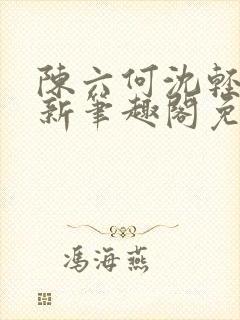 陳六何沈輕
新筆趣閣免
馮海燕